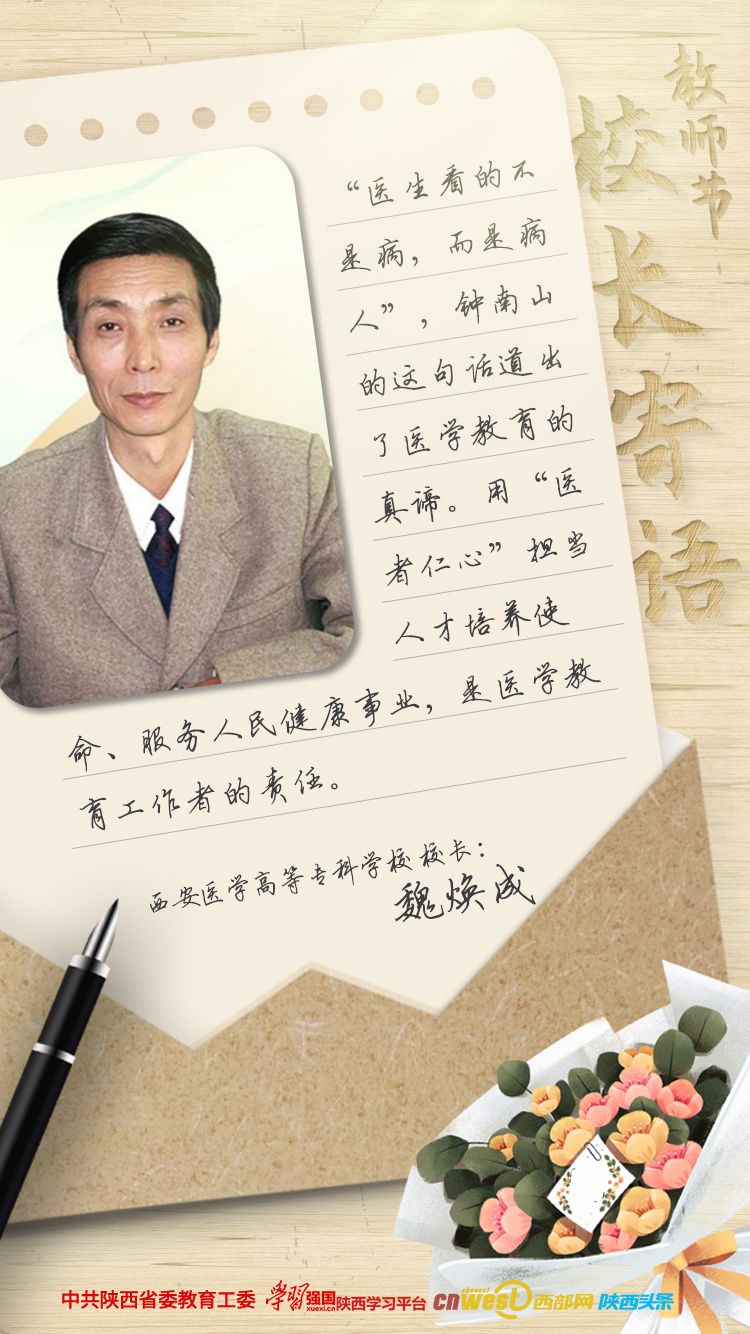 教师节
校长寄语
“医生看的不
是病，而是病
人”，钟南山
的这句话道出
了医学教育的
真谛。用“医
者仁心”担当
人才培养使
命、服务人民健康事业，是医学教
育工作者的责任。
西安医学高等专科学校校长：
魏焕成
中共陕西省委教育工委 学习强国 xuexi.cn 陕西学习平台 cnwest 西部网 陕西头条